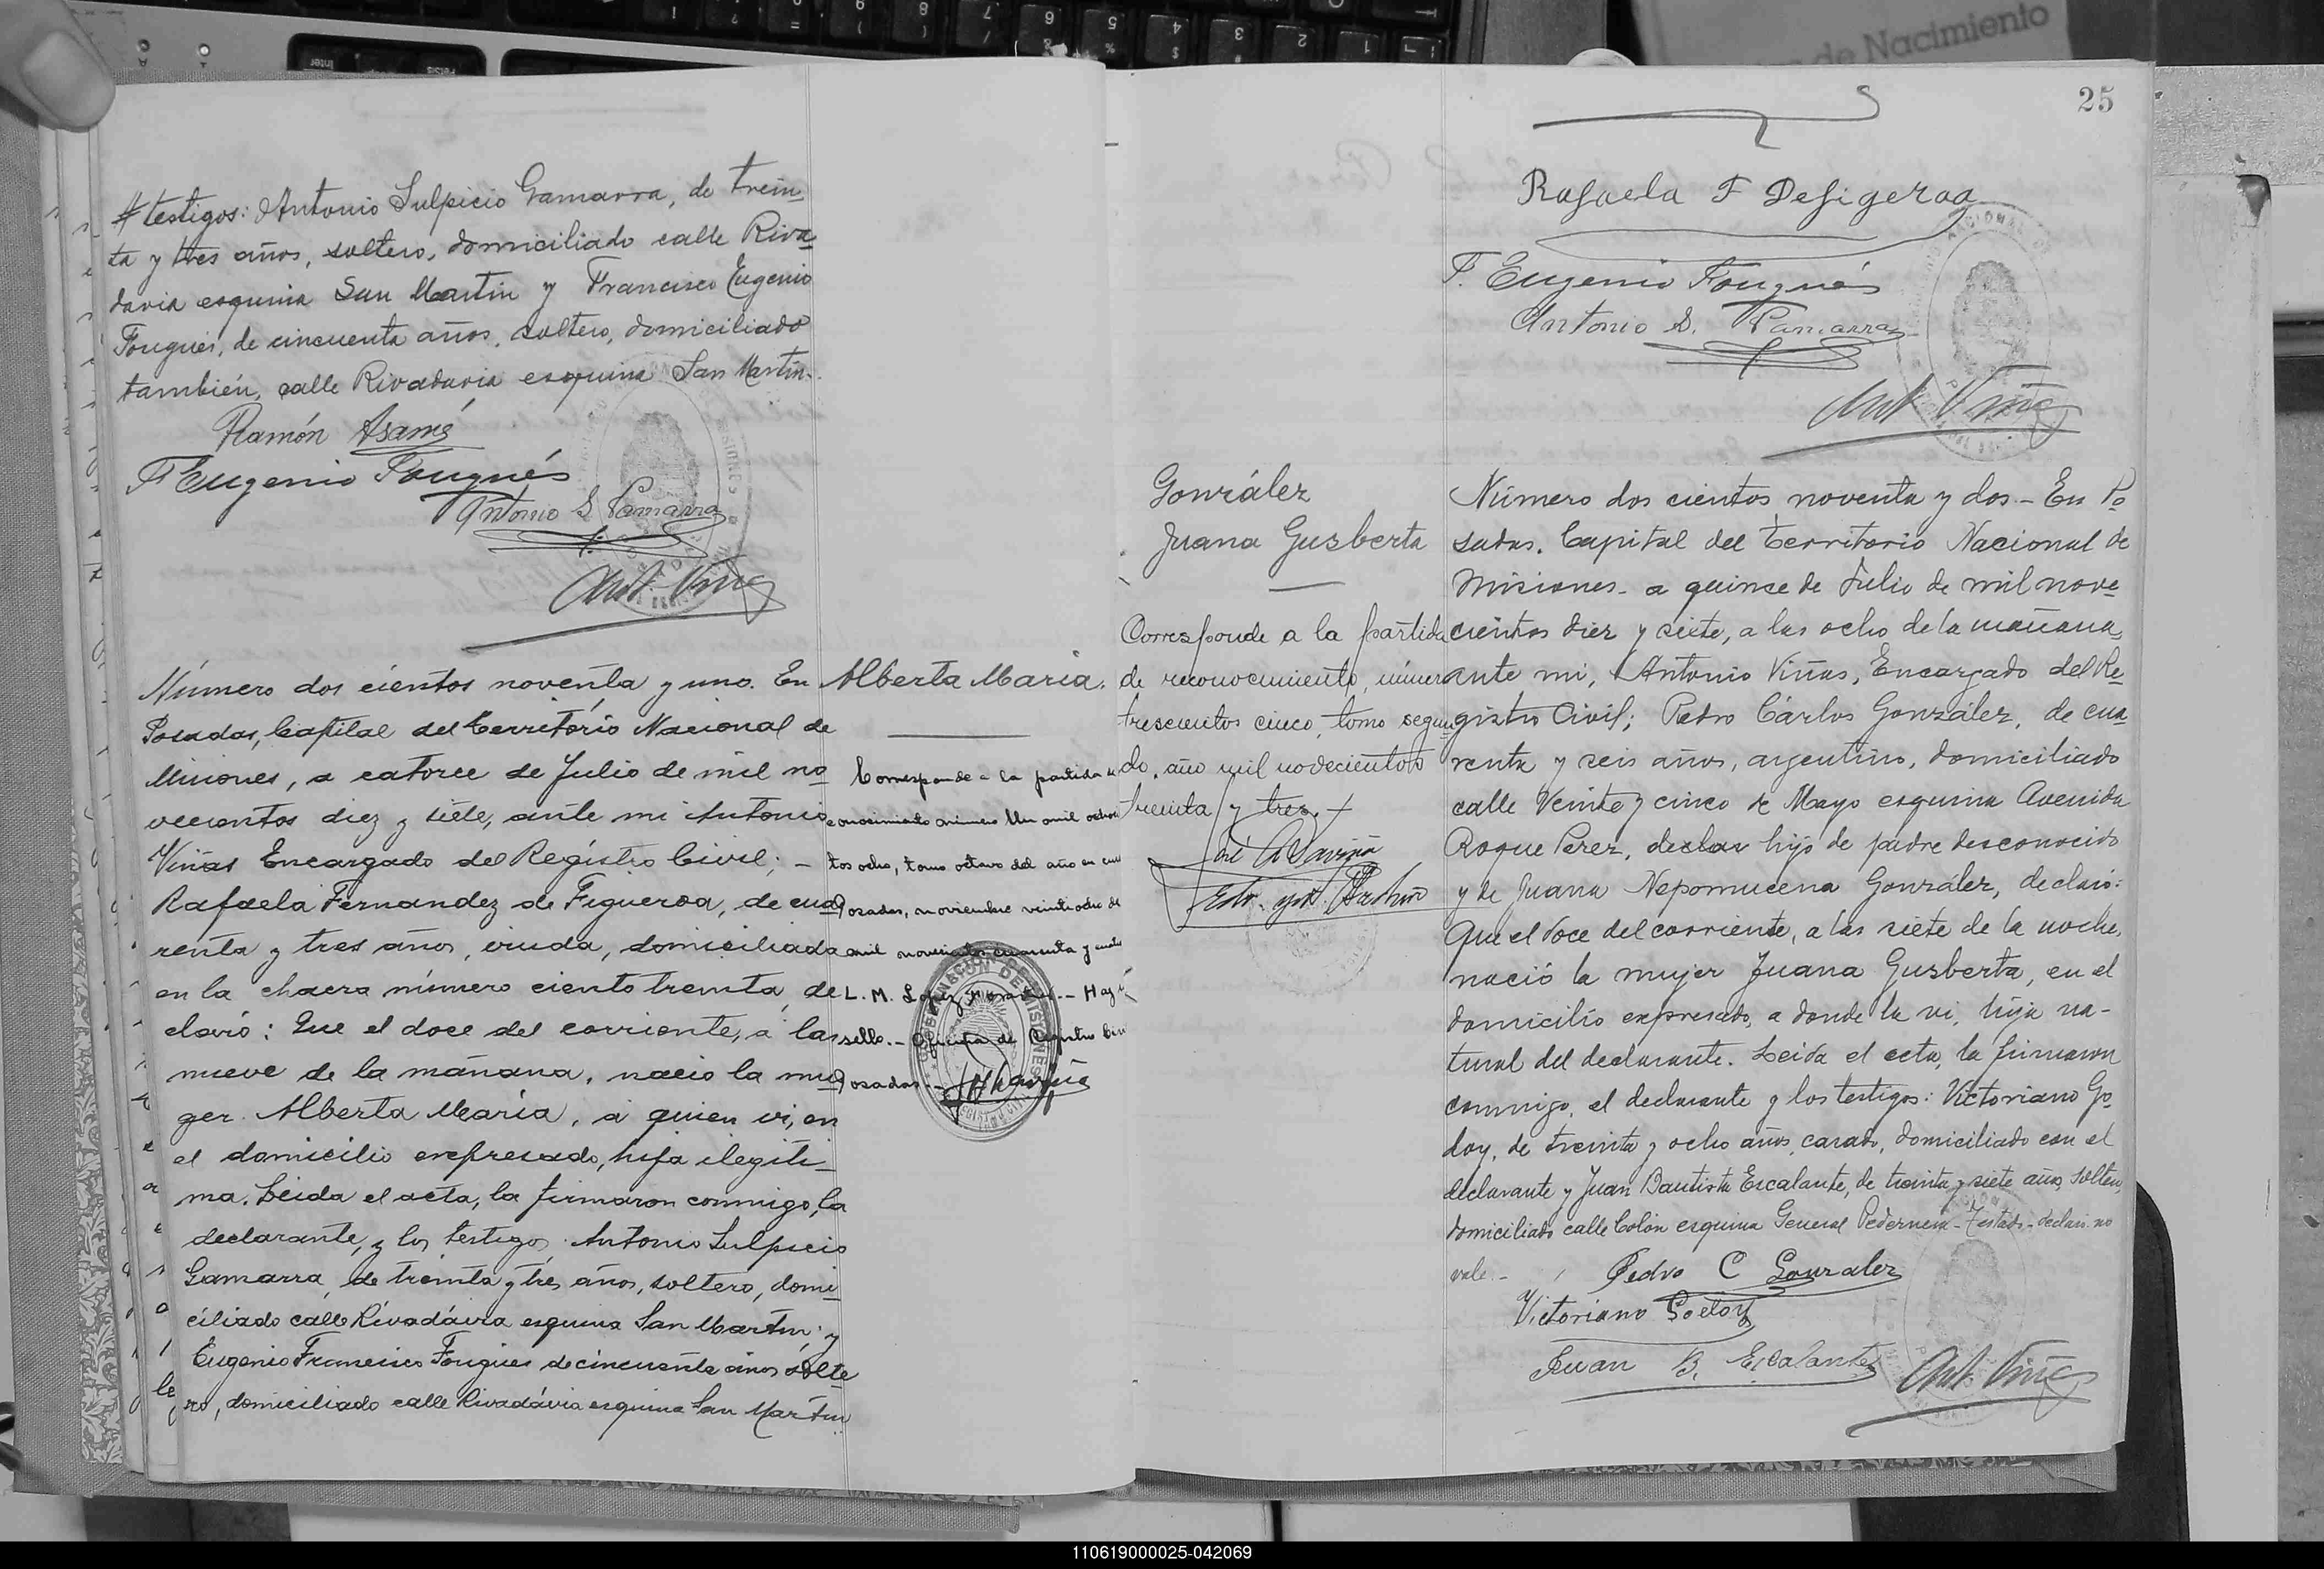 de Nacimiento
# testigos: Antonio Sulpicio Gamarra, de trein-
ta y tres años, soltero, domiciliado calle Riva-
davia esquina San Martin y Francisco Eugenio
Fougués, de cincuenta años, soltero, domiciliado
también, calle Rivadavia esquina San Martín.
Ramón
F Eugenio Fougués
Antonio S Gamarra
Ant. Viñas
Número dos cientos noventa y uno. En
Posadas, Capital del Territorio Nacional de
Misiones, a catorce de Julio de mil no-
vecientos diez y siete, ante mi Antonio
Viñas Encargado del Registro Civil; -
Rafaela Fernandez de Figueroa, de cua-
renta y tres años, viuda, domiciliada
en la chacra número ciento treinta, de-
claró: Que el doce del corriente, a las
nueve de la mañana, nacio la mu-
ger Alberta María, á quien vi, en
el domicilio expresado, hija ilegiti-
ma. Leida el acta, la firmaron conmigo, la
declarante, y los testigos: Antonio Sulpicio
Gamarra, de treinta y tres años, soltero, domi-
ciliado calle Rivadávia esquina San Martin; y
Eugenio Francisco Fougues de cincuenta años solte-
ro, domiciliado calle Rivadávia esquina San Martin
Alberta María.
Corresponde a la partida
conocimiento número Un mil ocho
tos ocho, tomo octavo del año en
Posadas, noviembre veintiocho de
mil novecientos cuarenta y
L. M. Lopez - Hay
sello. - Oficina de Registro
Posadas. -
25
Rafaela F Defigeroa
F. Eugenio Fougués
Antonio S. Gamarra
Ant Viñas
González
Juana Gusberta
Corresponde a la partida
de reconocimiento, número
trescientos cinco, tomo segun-
do, año mil novecientos
treinta y tres.
Número dos cientos noventa y dos - En Po-
sadas. Capital del Territorio Nacional de
Misiones - a quince de Julio de mil nove-
cientos diez y siete, a las ocho de la mañana,
ante mi, Antonio Viñas, Encargado del Re-
gistro Civil; Pedro Cárlos González, de cua-
renta y seis años, argentino, domiciliado
calle Veinte y cinco de Mayo esquina Avenida
Roque Perez, declar hijo de padre desconocido
y de Juana Nepomucena González, declaró:
Que el doce del corriente, a las siete de la noche,
nació la mujer Juana Gusberta, en el
domicilio expresado, a donde la vi, hija na-
tural del declarante. Leida el acta, la firmaron
conmigo, el declarante y los testigos: Victoriano Go-
doy, de treinta y ocho años, casado, domiciliado con el
declarante y Juan Bautista Escalante, de treinta y siete años, soltero,
domiciliado calle Colón esquina General Pedernera - Testado - declar. no
vale. -
Pedro C Gonzalez
Victoriano Godoy
Juan B. Escalante
Ant. Viñas
110619000025-042069